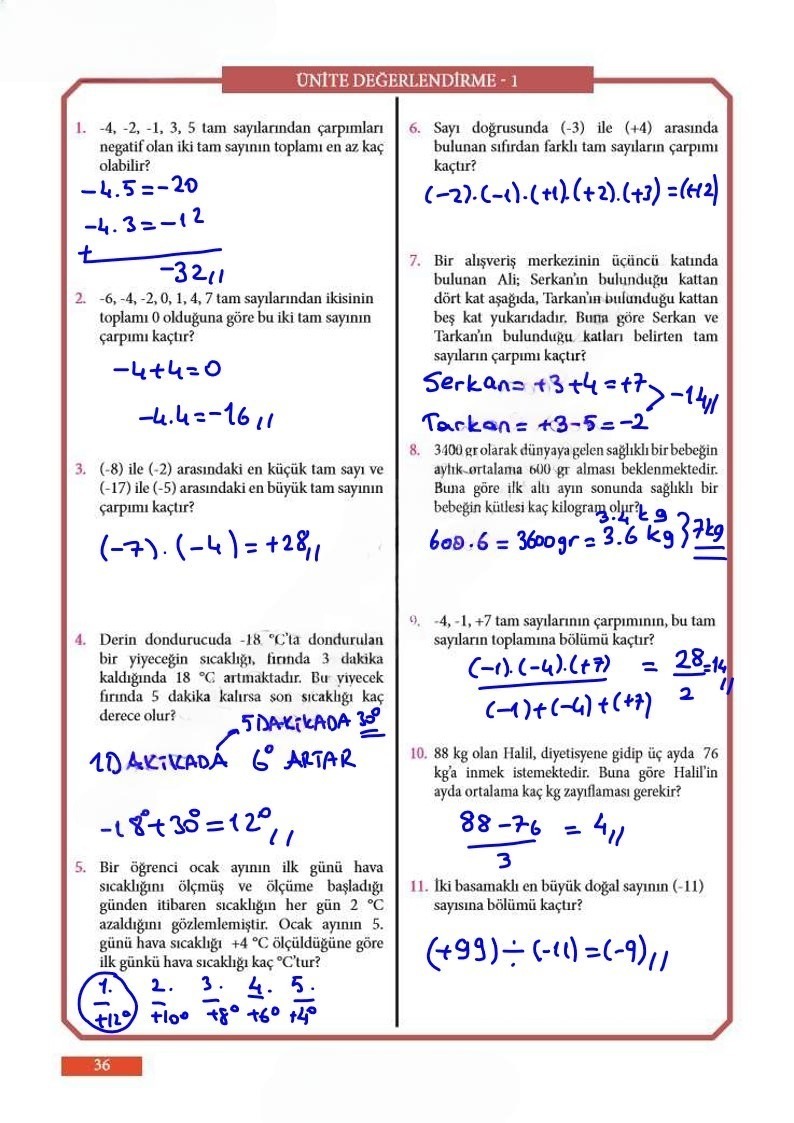 ÜNİTE DEĞERLENDİRME - 1
1. -4, -2, -1, 3, 5 tam sayılarından çarpımları
negatif olan iki tam sayının toplamı en az kaç
olabilir?
-4.5=-20
-4.3=-12
+
-32//
2. -6, -4, -2, 0, 1, 4, 7 tam sayılarından ikisinin
toplamı 0 olduğuna göre bu iki tam sayının
çarpımı kaçtır?
-4+4=0
-4.4=-16//
3. (-8) ile (-2) arasındaki en küçük tam sayı ve
(-17) ile (-5) arasındaki en büyük tam sayının
çarpımı kaçtır?
(-7).(-4)=+28//
4. Derin dondurucuda -18 °C'ta dondurulan
bir yiyeceğin sıcaklığı, fırında 3 dakika
kaldığında 18 °C artmaktadır. Bu yiyecek
fırında 5 dakika kalırsa son sıcaklığı kaç
derece olur?
5 DAKİKADA 30°
1 DAKİKADA 6° ARTAR
-18°+30°=12°//
5. Bir öğrenci ocak ayının ilk günü hava
sıcaklığını ölçmüş ve ölçüme başladığı
günden itibaren sıcaklığın her gün 2 °C
azaldığını gözlemlemiştir. Ocak ayının 5.
günü hava sıcaklığı +4 °C ölçüldüğüne göre
ilk günkü hava sıcaklığı kaç °C'tur?
1. 2. 3. 4. 5.
+12° +10° +8° +6° +4°
6. Sayı doğrusunda (-3) ile (+4) arasında
bulunan sıfırdan farklı tam sayıların çarpımı
kaçtır?
(-2).(-1).(+1).(+2).(+3)=(+12)
7. Bir alışveriş merkezinin üçüncü katında
bulunan Ali; Serkan'ın bulunduğu kattan
dört kat aşağıda, Tarkan'ın bulunduğu kattan
beş kat yukarıdadır. Buna göre Serkan ve
Tarkan'ın bulunduğu katları belirten tam
sayıların çarpımı kaçtır?
Serkan= +3+4=+7
>-14//
Tarkan= +3-5=-2
8. 3400 gr olarak dünyaya gelen sağlıklı bir bebeğin
aylık ortalama 600 gr alması beklenmektedir.
Buna göre ilk altı ayın sonunda sağlıklı bir
bebeğin kütlesi kaç kilogram olur?
3.4 kg
600.6 = 3600gr = 3.6 kg } 7kg
9. -4, -1, +7 tam sayılarının çarpımının, bu tam
sayıların toplamına bölümü kaçtır?
(-1).(-4).(+7) = 28 =14//
(-1)+(-4)+(+7) 2
10. 88 kg olan Halil, diyetisyene gidip üç ayda 76
kg'a inmek istemektedir. Buna göre Halil'in
ayda ortalama kaç kg zayıflaması gerekir?
88-76 = 4//
3
11. İki basamaklı en büyük doğal sayının (-11)
sayısına bölümü kaçtır?
(+99)÷(-11)=(-9)//
36